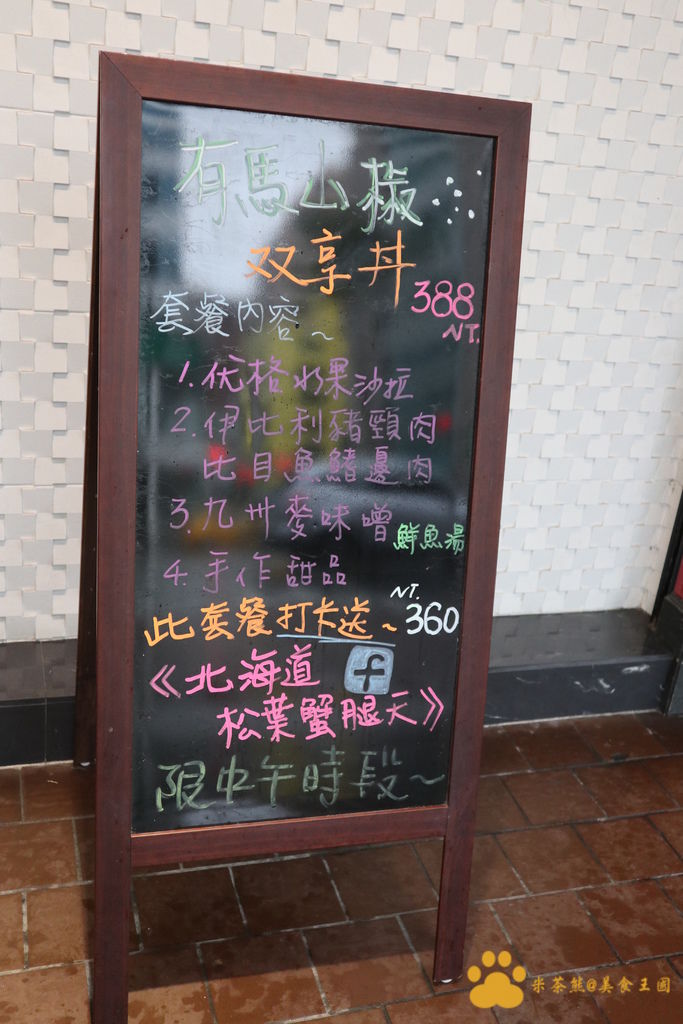 有馬山椒
双享丼
388
NT.
套餐內容~
1.优格水果沙拉
2.伊比利豬頸肉
比目魚鰭邊肉
3.九州麥味噌鮮魚湯
4.手作甜品
此套餐打卡送~
NT.
360
《北海道 f
松葉蟹腿天》
限中午時段~
米茶熊@美食王國